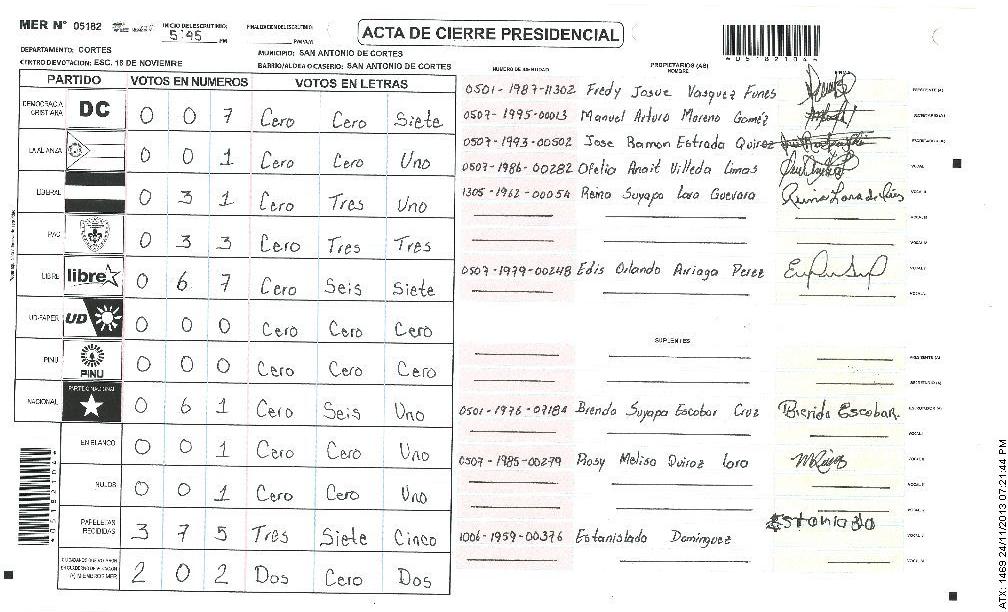 MER N° 05182
INICIO DEL ESCRUTINIO:
5:45 PM
FINALIZACION DEL ESCRUTINIO:
ACTA DE CIERRE PRESIDENCIAL
DEPARTAMENTO: CORTES
MUNICIPIO: SAN ANTONIO DE CORTES
CENTRO DE VOTACION: ESC. 18 DE NOVIEMRE
BARRIO/ALDEA O CASERIO: SAN ANTONIO DE CORTES
PARTIDO VOTOS EN NUMEROS VOTOS EN LETRAS
DEMOCRACIA CRISTIANA DC 0 0 7 Cero Cero Siete
LA ALIANZA 0 0 1 Cero Cero Uno
LIBERAL 0 3 1 Cero Tres Uno
PAC 0 3 3 Cero Tres Tres
LIBRE libre 0 6 7 Cero Seis Siete
UD-FAPER UD 0 0 0 Cero Cero Cero
PINU PINU 0 0 0 Cero Cero Cero
NACIONAL PARTIDO NACIONAL 0 6 1 Cero Seis Uno
EN BLANCO 0 0 1 Cero Cero Uno
NULOS 0 0 1 Cero Cero Uno
PAPELETAS RECIBIDAS 3 7 5 Tres Siete Cinco
2 0 2 Dos Cero Dos
NUMERO DE IDENTIDAD
PROPIETARIOS (AS)
NOMBRE
FIRMA
0501-1987-11302 Fredy Josue Vasquez Funes
0507-1995-00013 Manuel Arturo Moreno Goméz
0507-1993-00502 Jose Ramon Estrada Quiroz
0507-1986-00282 Ofelia Anait Villeda Limas
1305-1962-00054 Reina Suyapa Lara Guevara
0507-1979-00248 Edis Orlando Arriaga Perez
SUPLENTES
0501-1976-07184 Brenda Suyapa Escobar Cruz Brenda Escobar
0507-1985-00279 Rosy Melisa Quiroz Lara
1006-1959-00376 Estanislado Dominguez
ATX: 1469 24/11/2013 07:21:44 PM